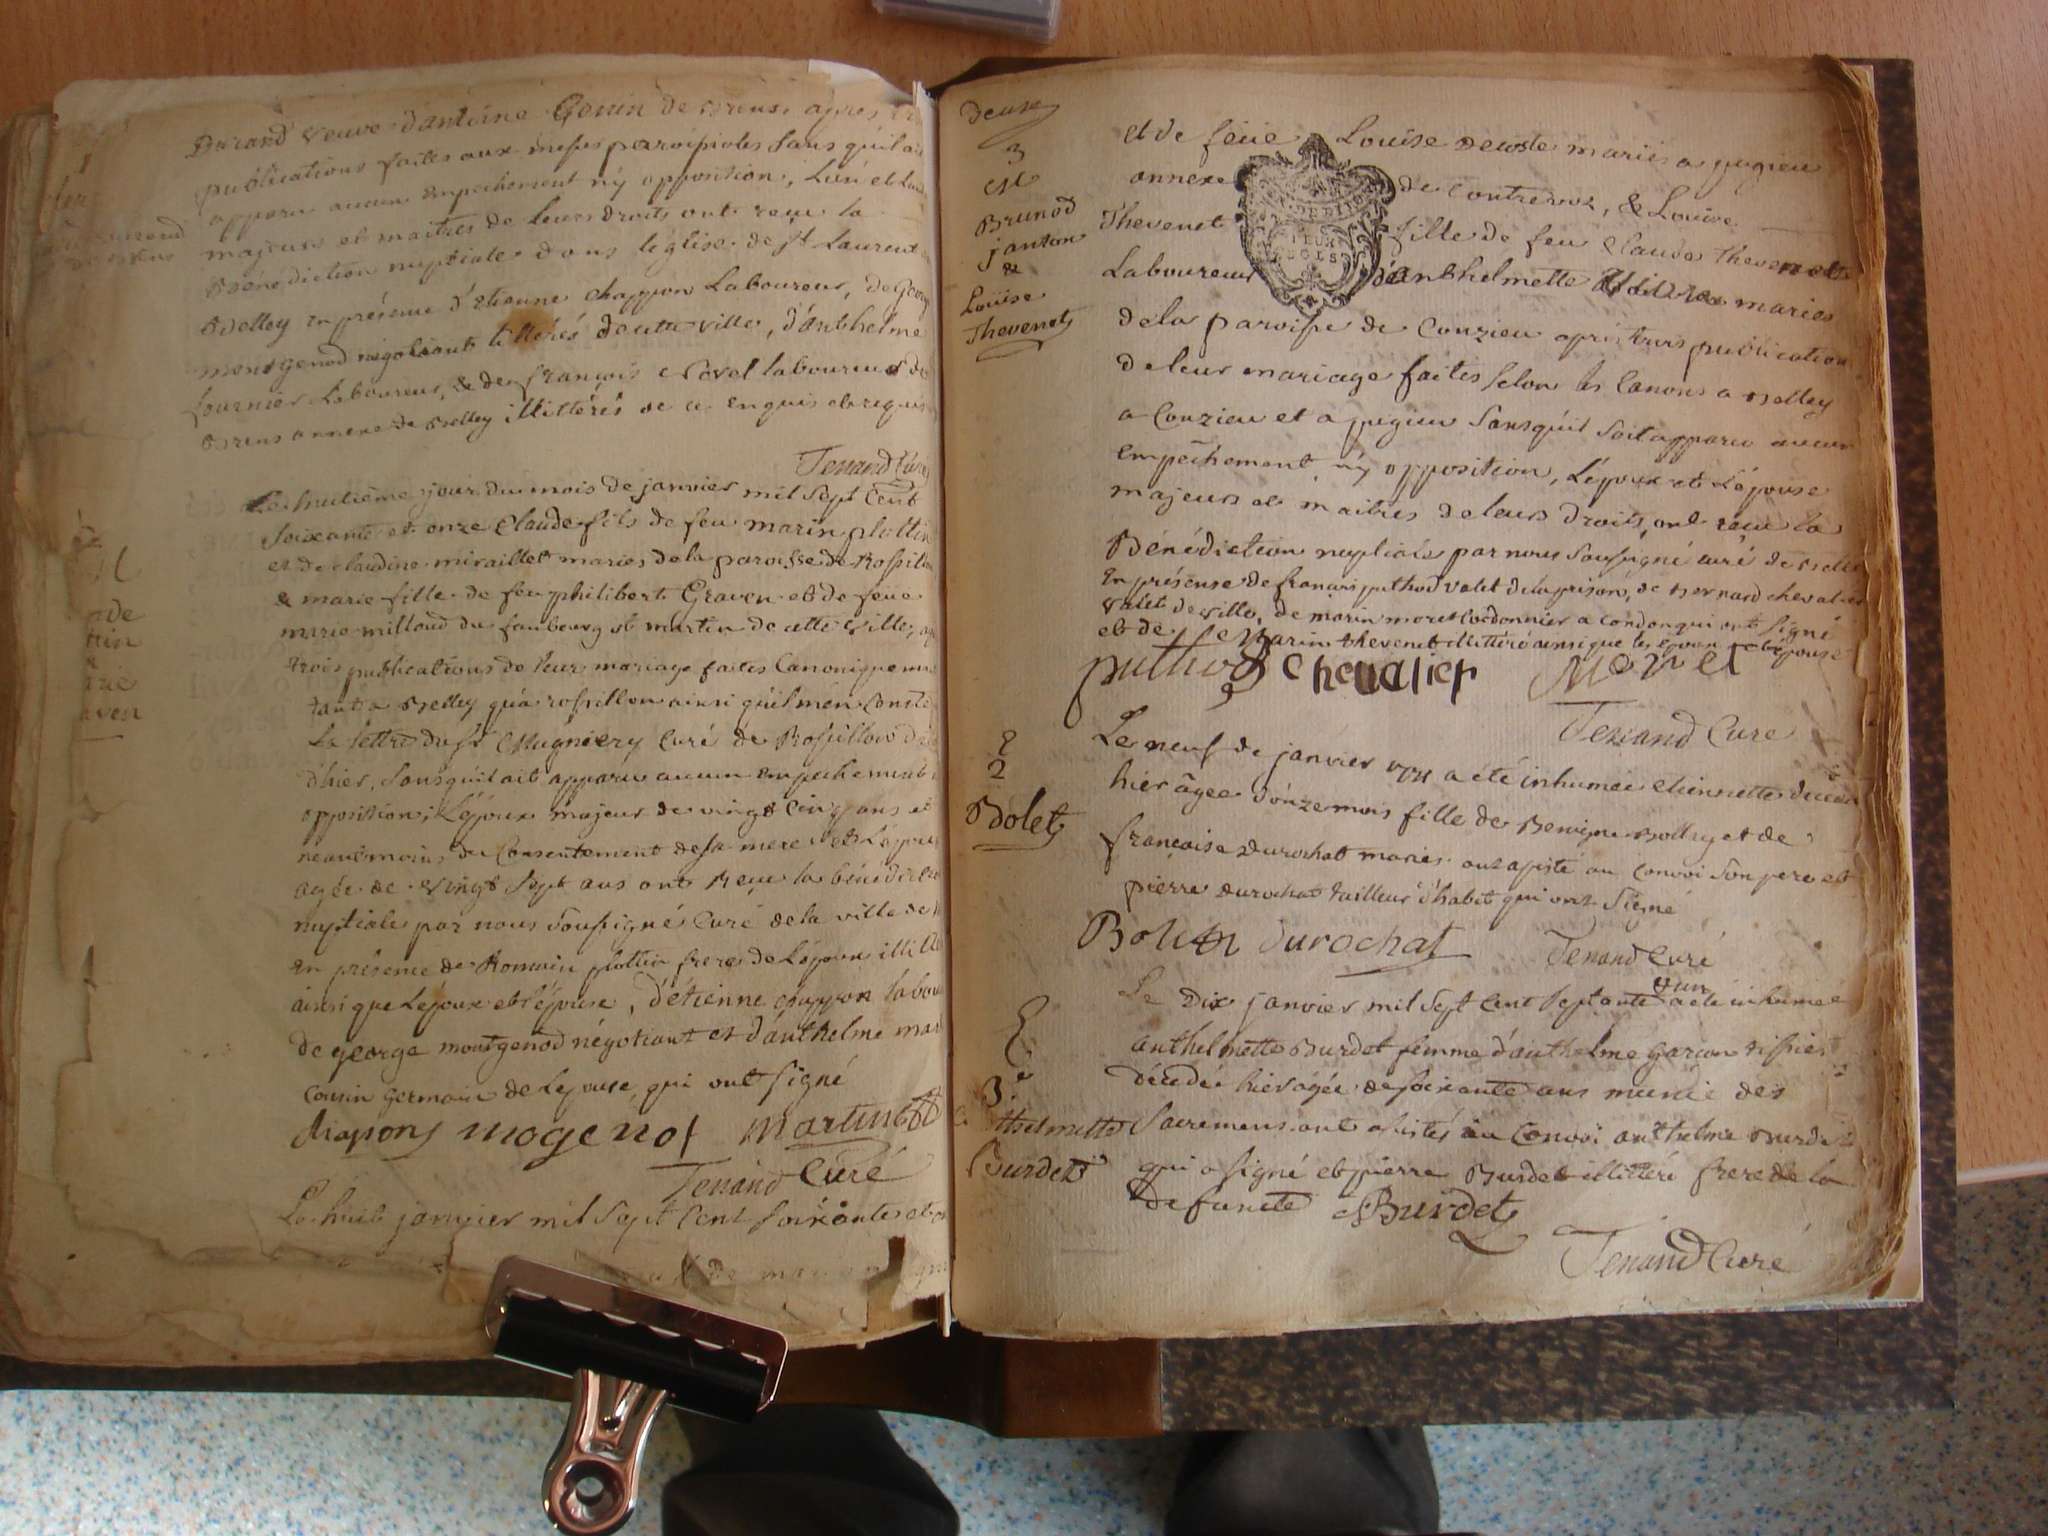 Durand veuve d'antoine Gonin de Brens apres
publications faites aux messes paroissiales sans qu'il ait
apparu aucun empechement ny opposition, l'un et l'autre
majeurs et maitres de leurs droits ont reçu la
Bénédiction nuptiale dans l'église de st Laurent
Belley en présence d'Etienne chappon Laboureur, de George
montgenod négotiant illitérés de cette ville, d'anthelme
fournier Laboureur, & de françois Novel laboureur de
Brens annexe de Belley illittérés de ce enquis et requis
Tenand Curé
Le huitième jour du mois de janvier mil sept Cent
soixante et onze Claude fils de feu marin plottin
et de claudine miraillet mariés de la paroisse de Rossillon
& marie fille de feu philibert Graven et de feüe
marie millioud du faubourg st martin de cette ville,
trois publications de leur mariage faites Canoniquement
tant a Belley qu'a rossillon ainsi qu'il m'en conste
La lettre du sr Mugniery Curé de Rossillon
d'hier, sans qu'il ait apparu aucun empechement
opposition, L'époux majeur de vingt cinq ans et
neantmoins du Consentement de sa mere et L'épouse
agée de vingt sept ans ont Reçu la bénédiction
nuptiale par nous soussigné Curé de la ville de
en présence de Romain plottin frere de L'époux illi
ainsi que Lepoux et l'épouse, d'étienne chappon labou
de george montgenod négotiant et d'anthelme mar
cousin germain de Lepouse, qui ont signé
chapon mogenot martin
Tenand Curé
Le huit janvier mil sept Cent soixante et
de
tin
&
rie
aven
deux
3
M
Brunod
janton
&
Loüise
Thevenet
et de feüe Louise decoste mariés a pugieu
annexe de Contrevoz, & Louise
Thevenet fille de feu Claude Thevenet
Laboureur d'anthelmette mariés
de la paroisse de Conzieu après trois publications
de leur mariage faites selon les Canons a Belley
a Conzieu et a pugieu sans qu'il soit apparu aucun
empêchement ny opposition, L'époux et L'épouse
majeurs et maitres de leurs droits, ont reçu la
Bénédiction nuptiale par nous soussigné curé de Belley
En présense de francois puthod valet de la prison, de Bernard chevalier
valet de ville, de marin moret Cordonnier a Condon qui ont signé
et de Marin thevenet illittéré ainsi que les époux et épouse
puthod Chevalier Moret
Tenand Cure
E
2
Bolet
Le neuf de janvier 1771 a été inhumée etiennette
hier âgée d'onze mois fille de Benigne Bolley et de
francoise Durochat mariés ont assisté au Convoi son pere et
pierre durochat tailleur d'habit qui ont signé
Bolet Durochat
Tenand Curé
E
3e
thelmette
Burdet
Le Dix janvier mil sept Cent septante & un a été inhumée
anthelmette Burdet femme d'anthelme garçon tissier
décédée hier agée de soixante ans munie des
Sacremens ont assistés au Convoi anthelme Burdet
qui a signé et pierre Burdet illittéré frere de la
defuncte Burdet
Tenand Curé